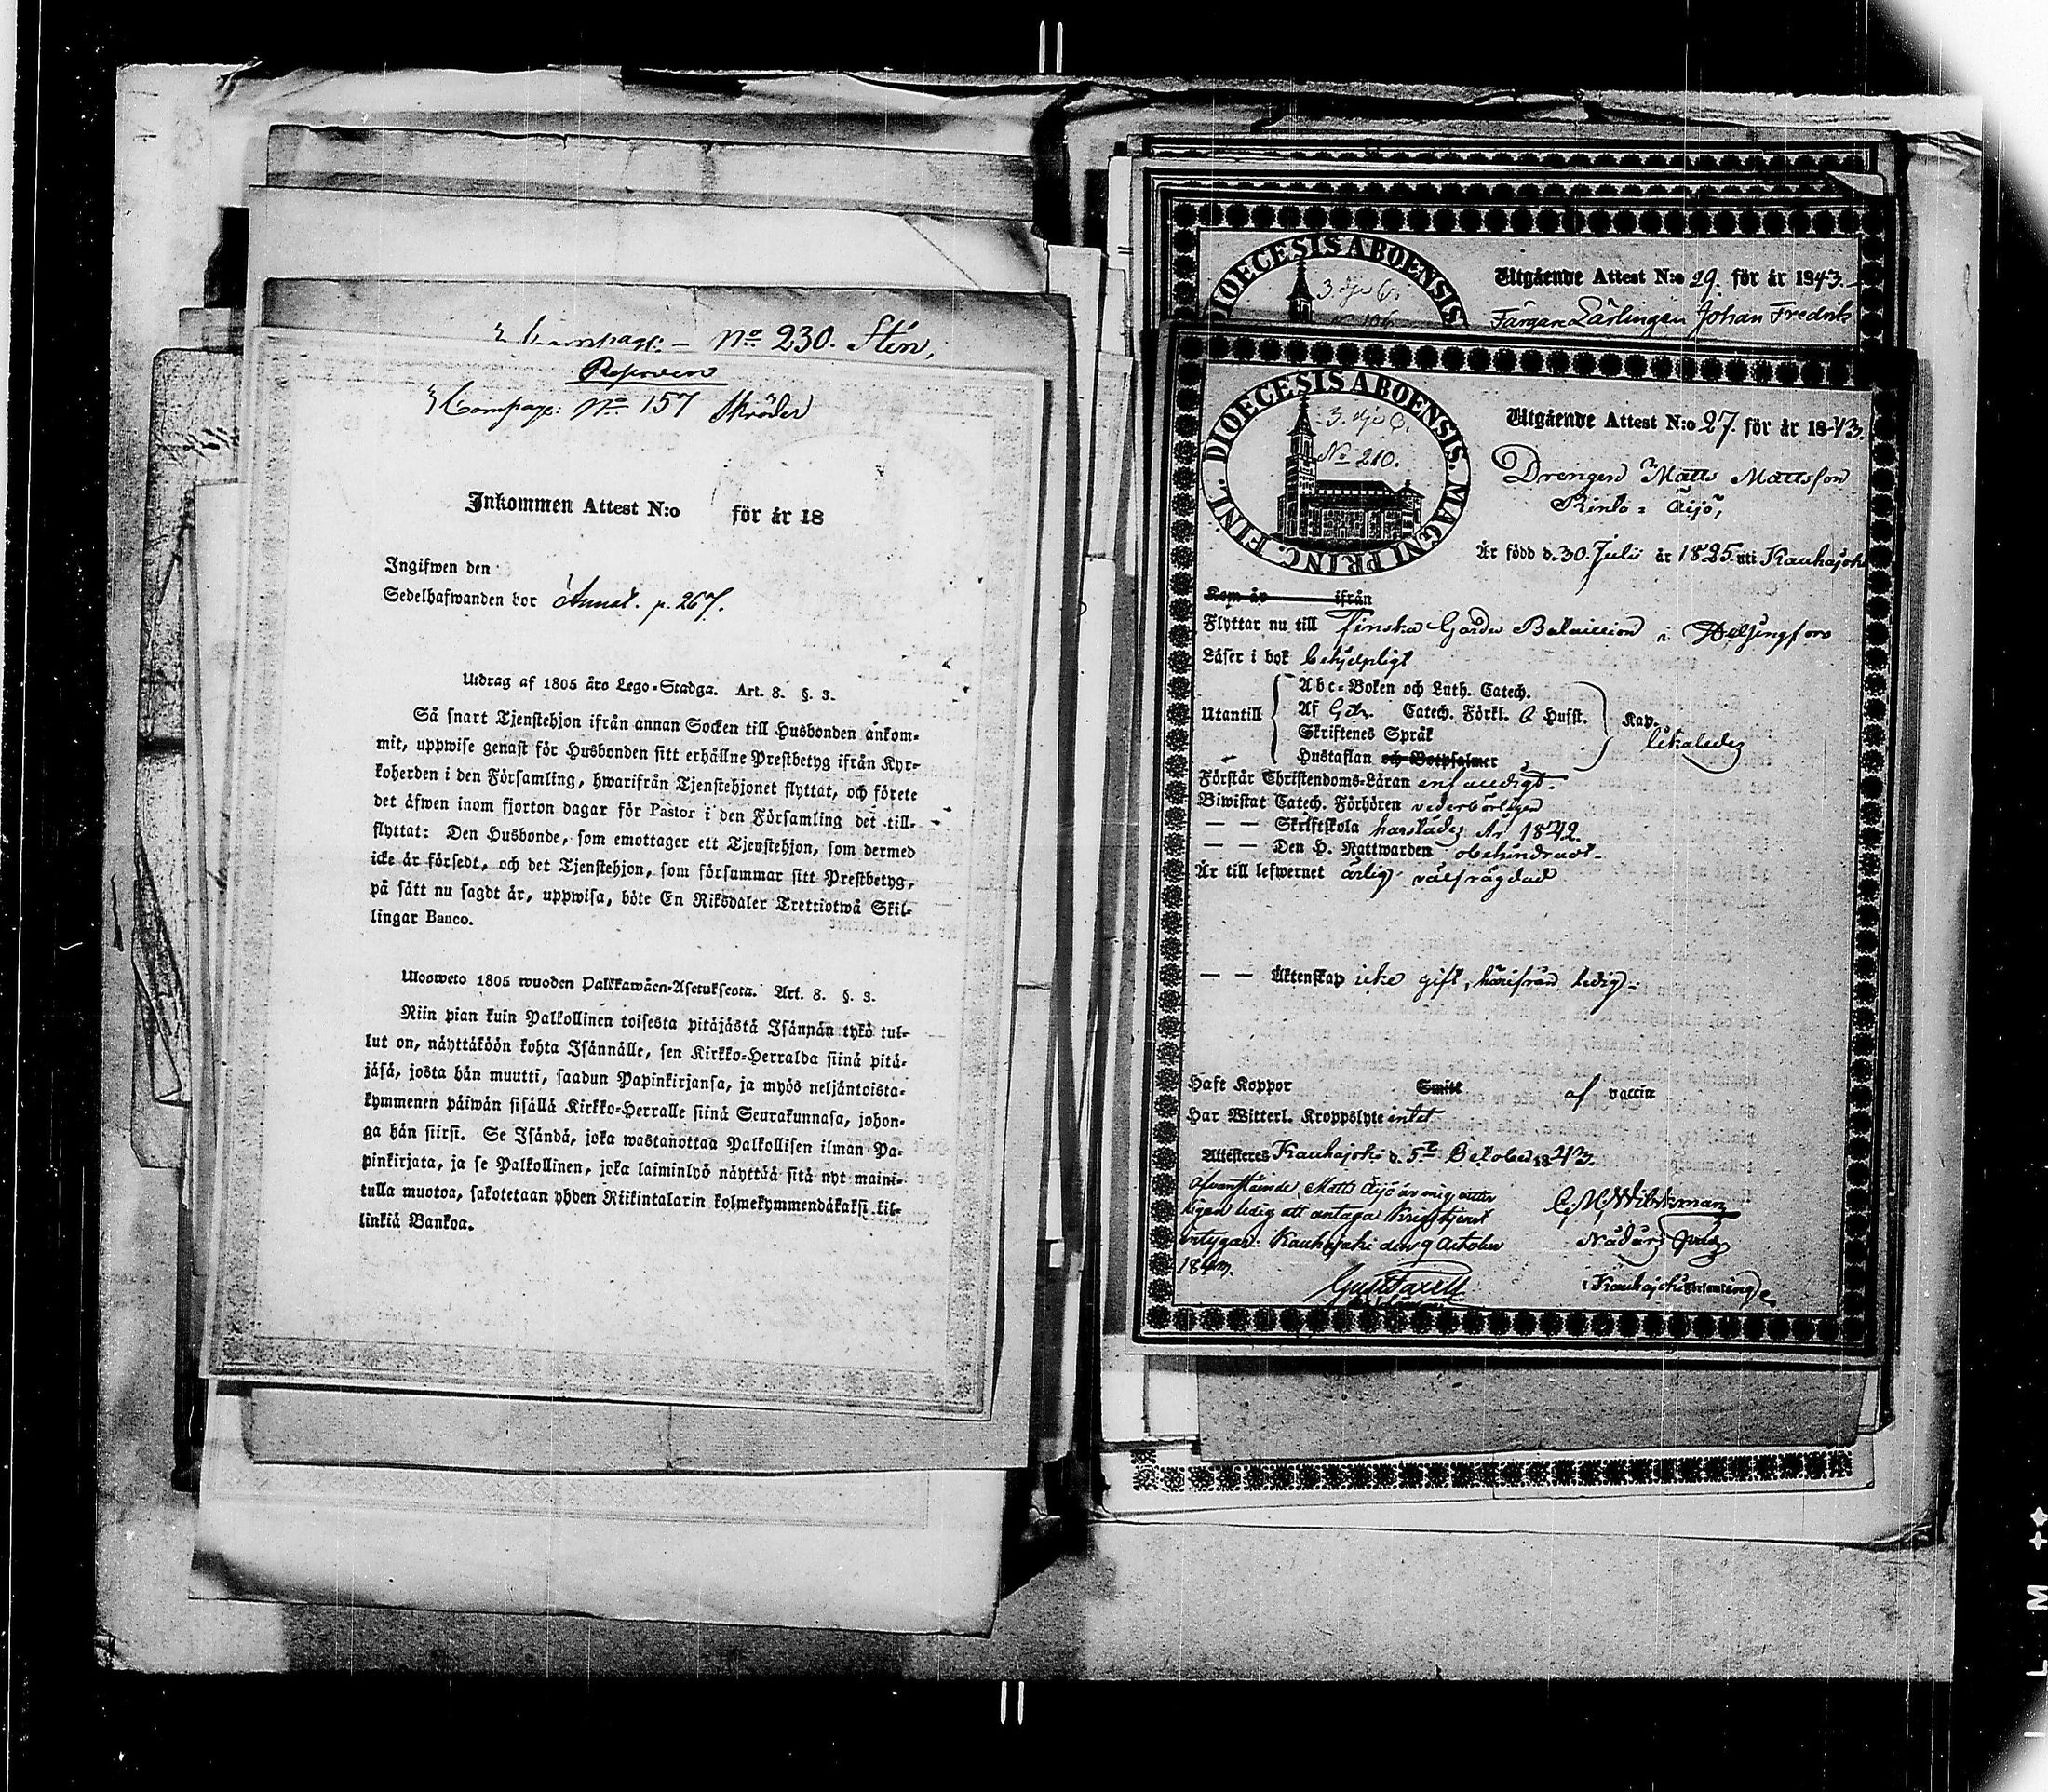 Compagn: - No 230. Stén,
Compagn: No 157 Skräder
Inkommen Attest N:o för år 18
Ingifwen den
Sedelhafwanden bor Annal. p. 267.
Utdrag af 1805 års Lego-Stadga. Art. 8. §. 3.
Så snart Tjenstehjon ifrån annan Socken till Husbonden ankom-
mit, uppwise genast för Husbonden sitt erhållne Prestbetyg ifrån Kyr-
koherden i den Församling, hwarifrån Tjenstehjonet flyttat, och förete
det äfwen inom fjorton dagar för Pastor i den Församling det till-
flyttat: Den Husbonde, som emottager ett Tjenstehjon, som dermed
icke är försedt, och det Tjenstehjon, som försummar sitt Prestbetyg,
på sätt nu sagdt är, uppwisa, böte En Riksdaler Trettiotwå Skil-
lingar Banco.
Ulosweto 1805 wuoden Palkkawäen-Asetuksesta. Art. 8. §. 3.
Niin pian kuin Palkollinen toisesta pitäjästä Isännän tykö tul-
lut on, näyttäköön kohta Isännälle, sen Kirkko-Herralda siinä pitä-
jäsä, josta hän muutti, saadun Papinkirjansa, ja myös neljäntoista-
kymmenen päiwän sisällä Kirkko-Herralle siinä Seurakunnasa, johon-
ga hän siirsi. Se Isändä, joka wastanottaa Palkollisen ilman Pa-
pinkirjata, ja se Palkollinen, joka laiminlyö näyttää sitä nyt maini-
tulla muotoa, sakotetaan yhden Riikintalarin kolmekymmendäkaksi kil-
linkiä Bankoa.
DIOECESIS ABOENSIS
3. dje C.
No 106
Utgående Attest N:o 29. för år 1843.
Färgare Lärlingen Johan Fredrik
DIOECESIS ABOENSIS. MAGNI PRINC. FINL.
3. dje C.
No 210.
Utgående Attest N:o 27. för år 1843.
Drengen Matts Mattsson
Rinta-Äijö,
Är född d. 30. Julii år 1825. uti Kauhajoki
Kom år ifrån
Flyttar nu till Finska Gardes Bataillion i Helsingfors
Läser i bok behjelpligt
Utantill
Abc-Boken och Luth. Catech.
Af Catech. Förkl. Hufst.
Skriftenes Språk
Hustaflan och Botpsalmer
Kap.
likaledes
Förstår Christendoms-Läran enfaldigt.
Biwistat Catech. Förhören vederbörligen
— — Skriftskola härstädes År 1842.
— — Den H. Nattwarden obehindradt.
Är till lefwernet ärlig välfrägdad
— — Äktenskap icke gift, härifrån ledig.
Haft Koppor Smitt af vaccin
Har Witterl. Kroppslyte intet
Attesteres Kauhajoki d. 5te October 1843.
Ofvanstående Matts Äijö är mig vitter
ligen ledig att antaga Krigstjenst
intygar: Kauhajoki den 9 October
1843.
C. H. Wibelsman
Nådårs Pred.
i Kauhajoki Församling